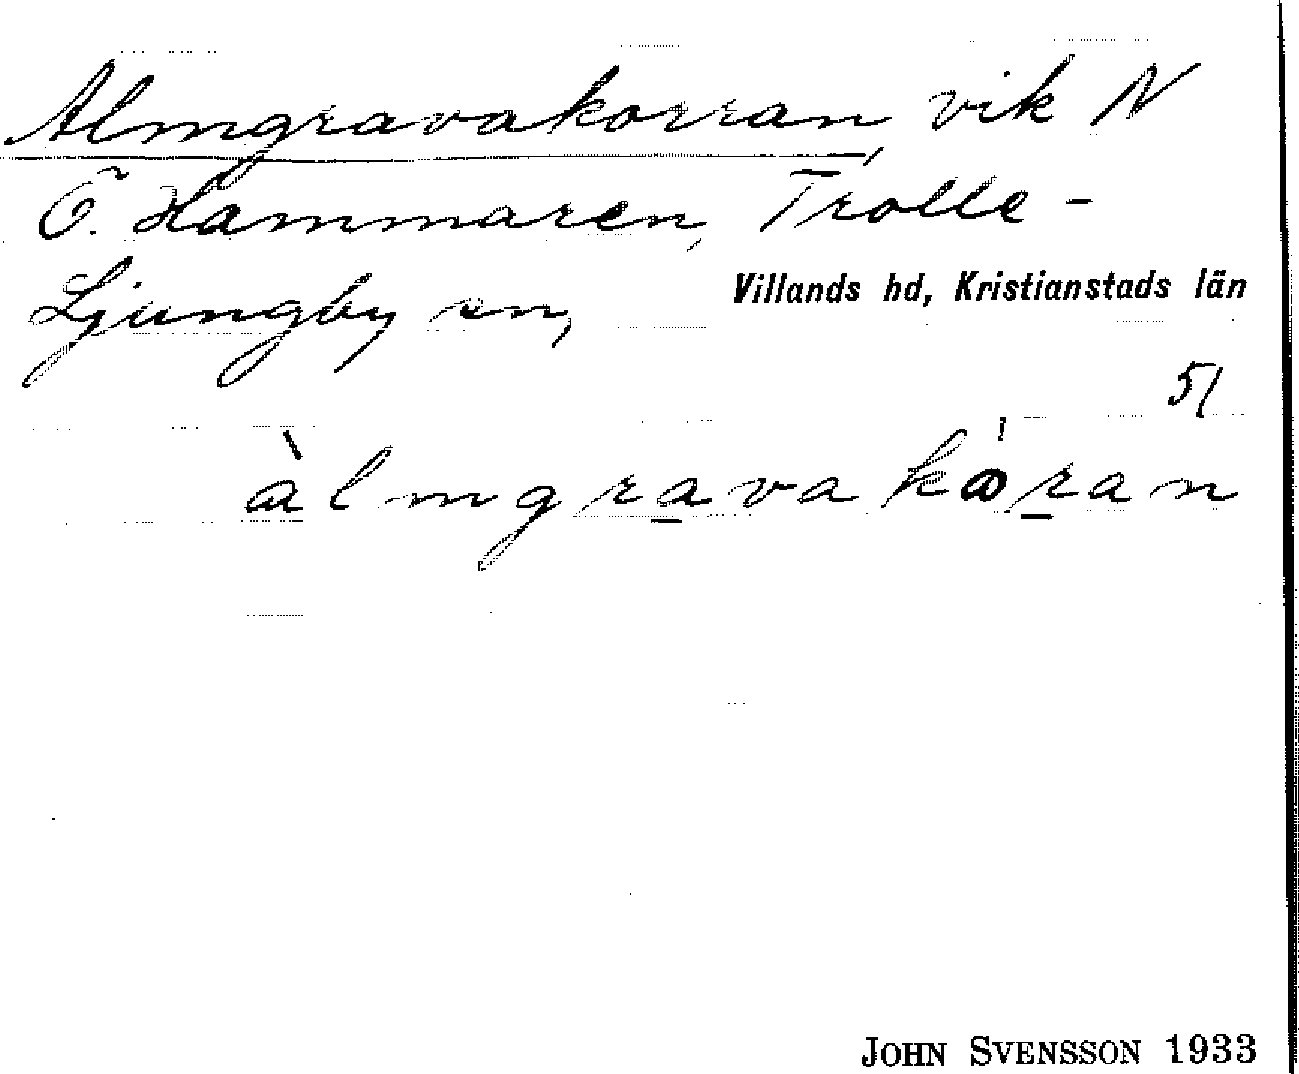 Almgravakorran, vik N
Ö. Hammaren, Trolle-
Ljungby sn, Villands hd, Kristianstads län
51
àlmgravakåran
JOHN SVENSSON 1933